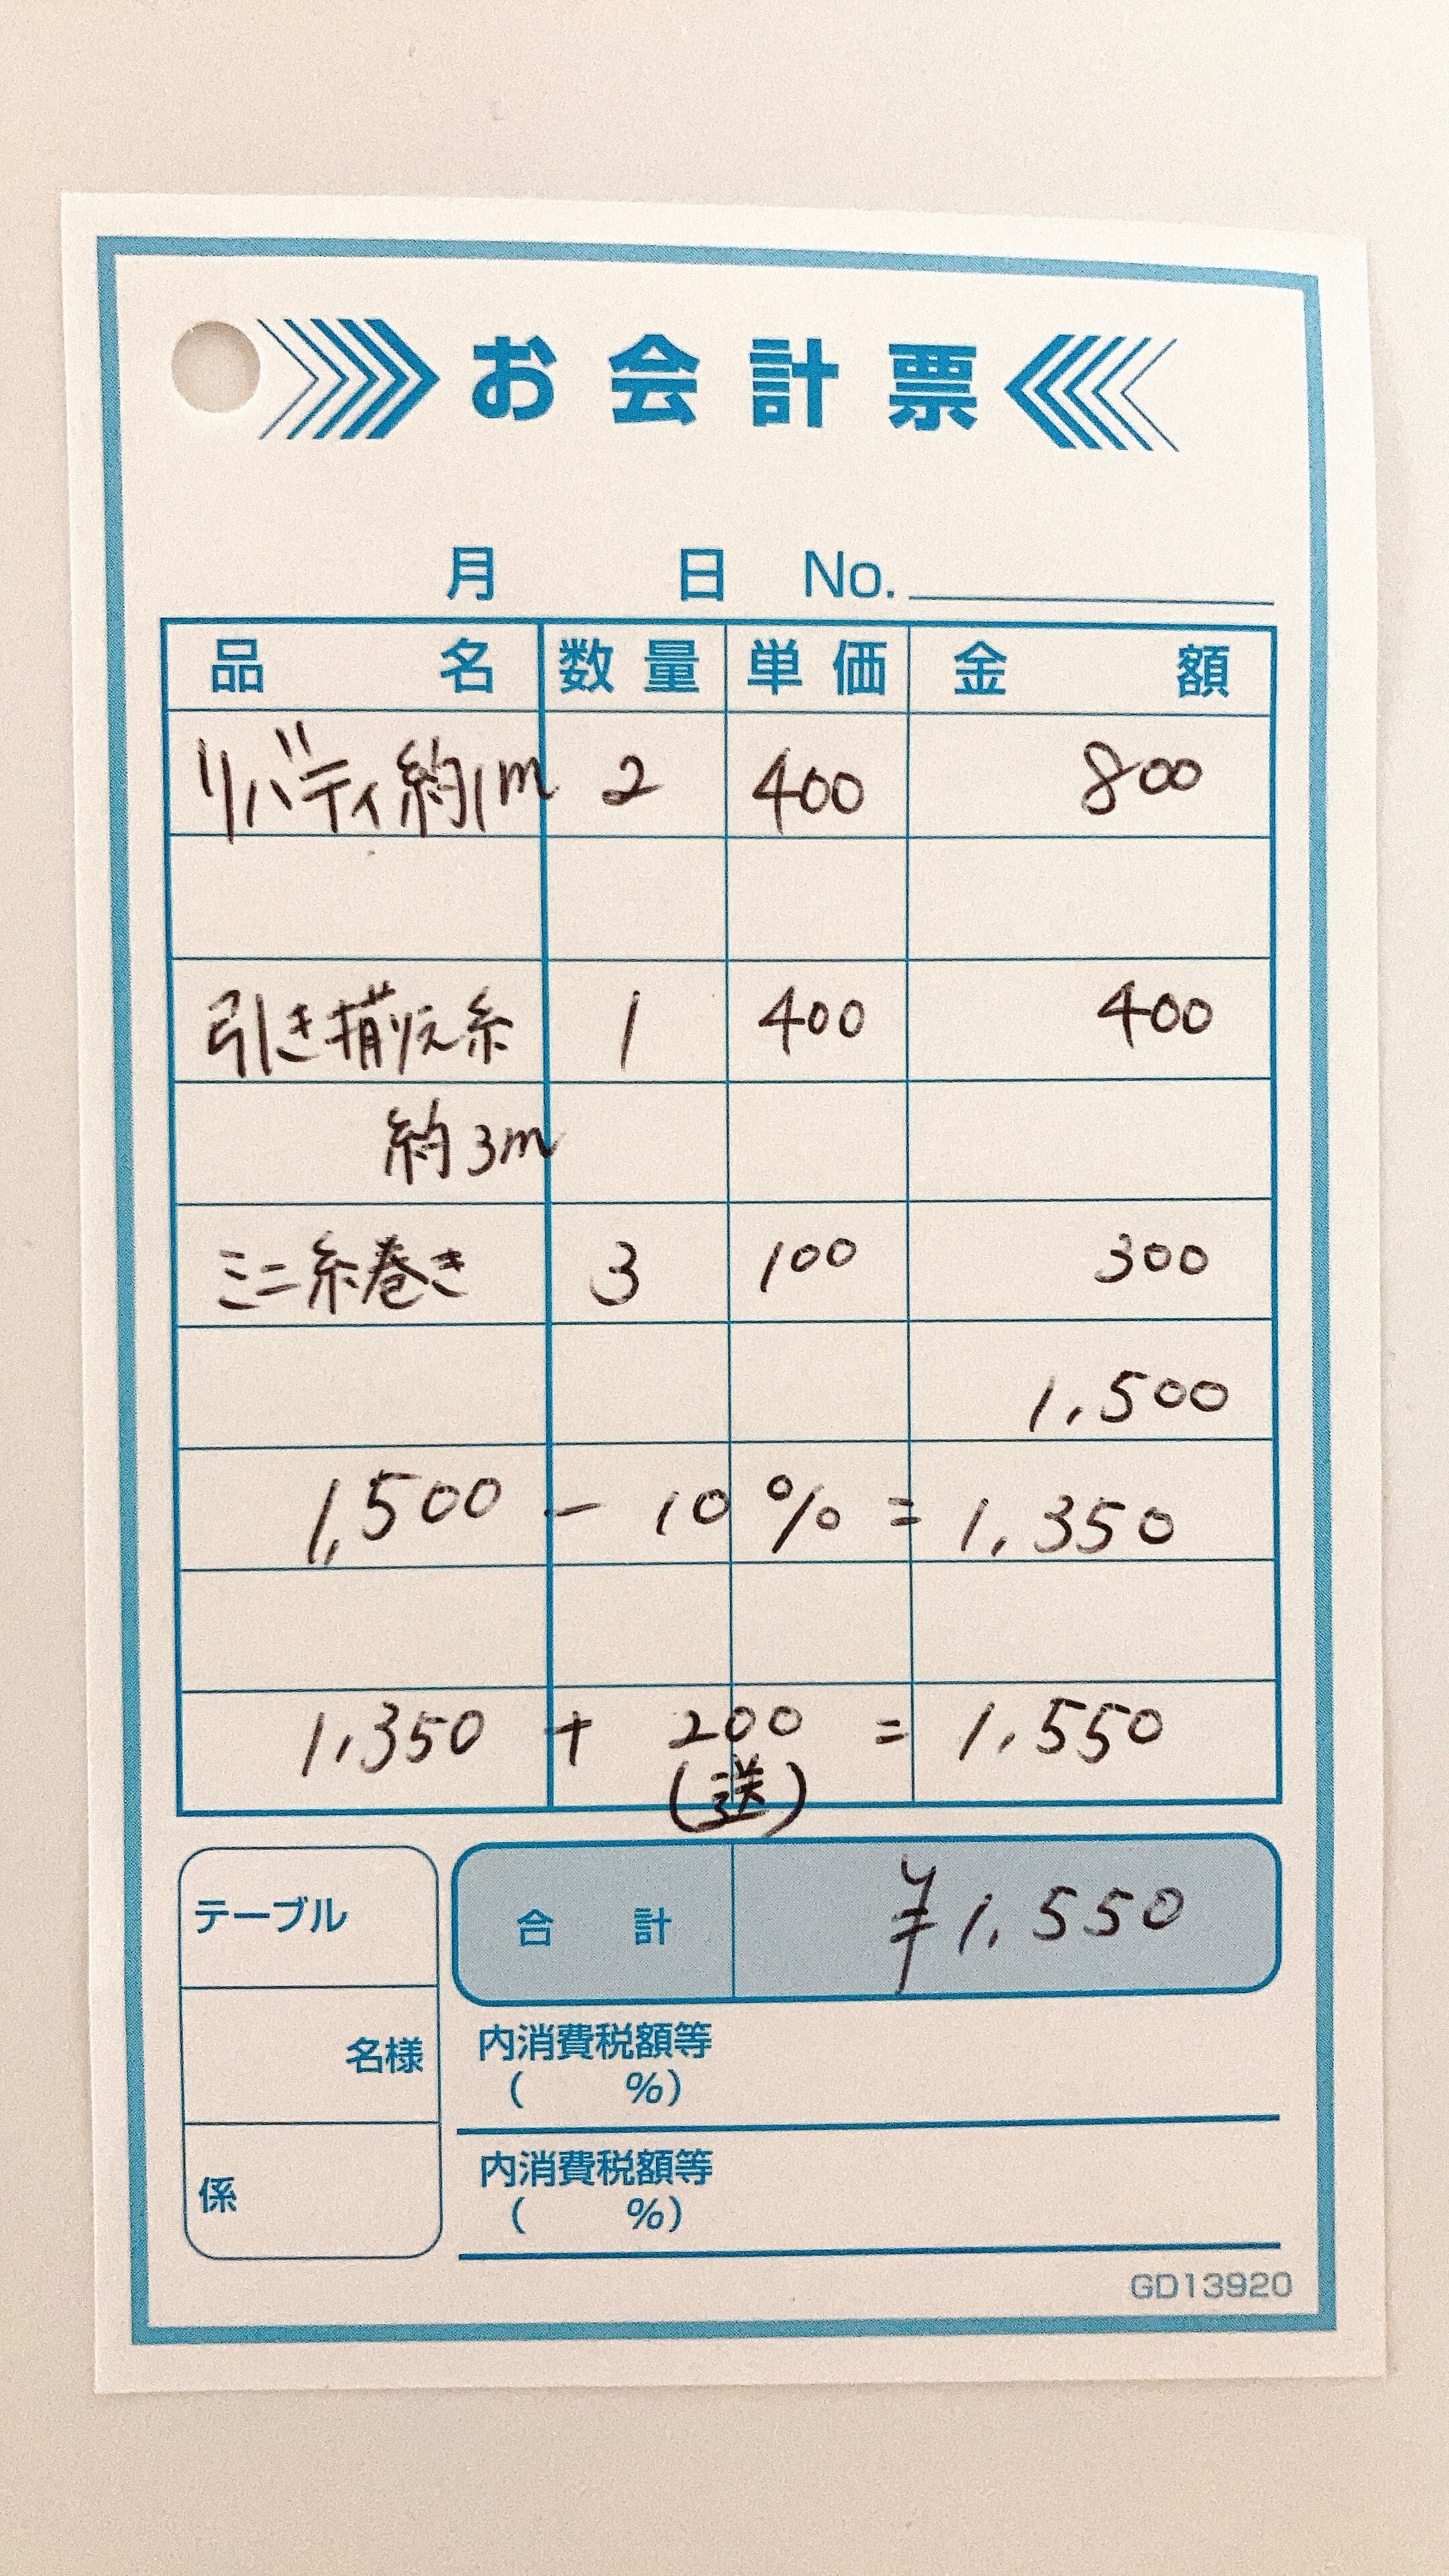 お会計票
月 日 No.
品名 数量 単価 金額
リバティ約1m 2 400 800
引き揃え糸 1 400 400
約3m
ミニ糸巻き 3 100 300
1,500
1,500 - 10% = 1,350
1,350 + 200 = 1,550
(送)
テーブル
合計 ¥1,550
名様
内消費税額等
( %)
係
内消費税額等
( %)
GD13920